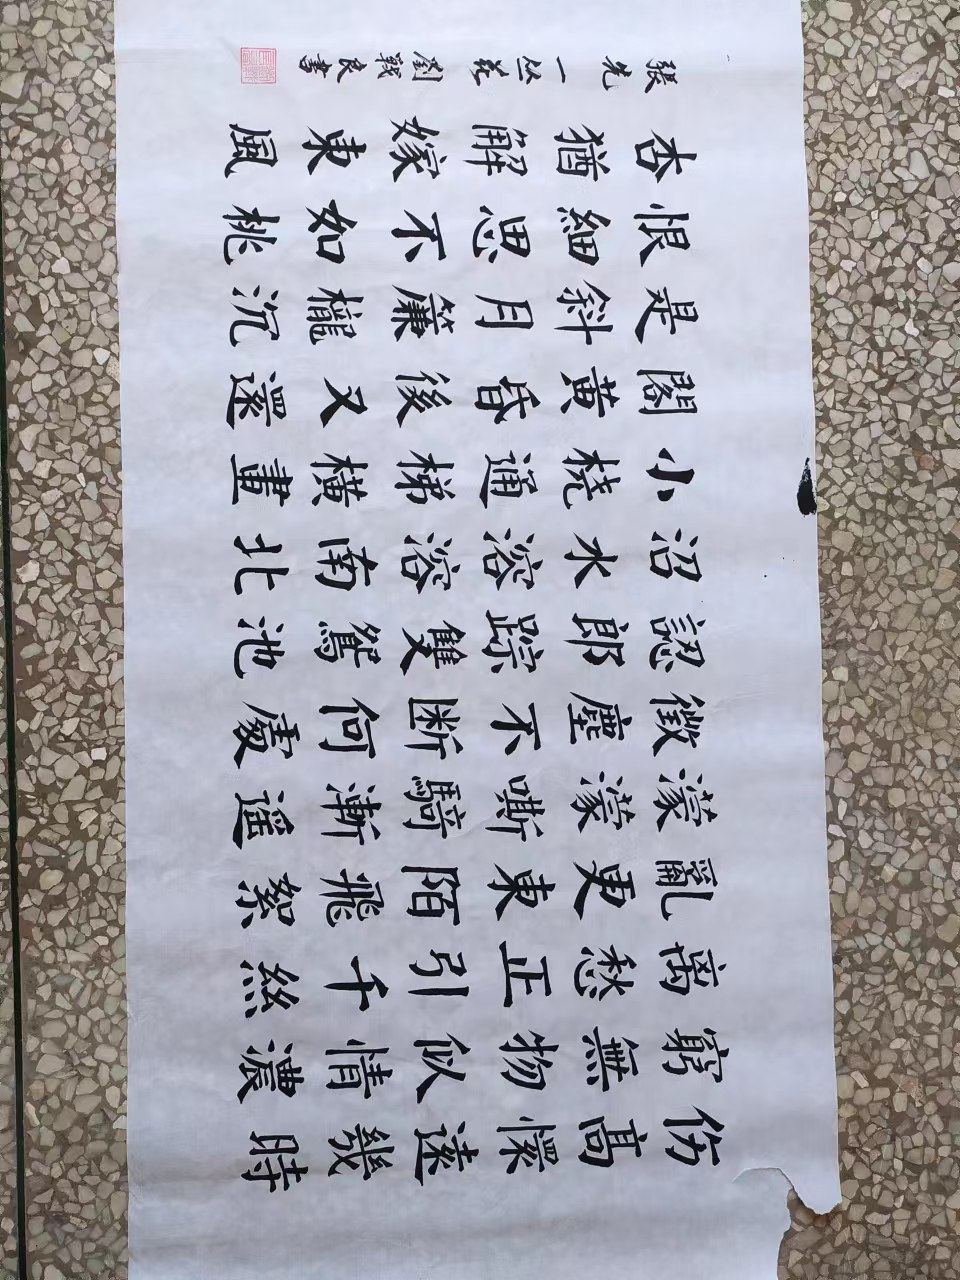 伤高懷遠幾時
窮無物似情濃
离愁正引千絲
亂更東陌飛絮
濛濛嘶騎漸遥
徵塵不断何處
認郎踪雙鴛池
沼水溶溶南北
小桡通梯橫畫
閣黄昏後又還
是斜月簾櫳沉
恨細思不如桃
杏猶解嫁東風
張先一丛花劉戰良書